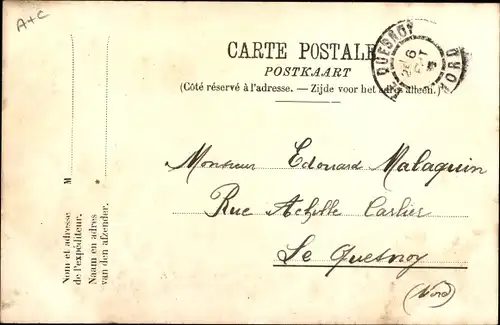 A+C
CARTE POSTALE
POSTKAART
(Côté réservé à l'adresse. — Zijde voor het adres alleen.)
QUESNOY
NORD
Monsieur Edouard Malaquin
Rue Achille Carlier
Le Quesnoy
(Nord)
M
*
Nom et adresse
de l'expéditeur.
Naam en adres
van den afzender.